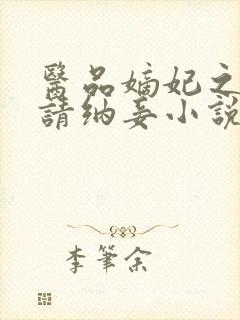 醫品嫡妃之
請納妾小說
李筆余